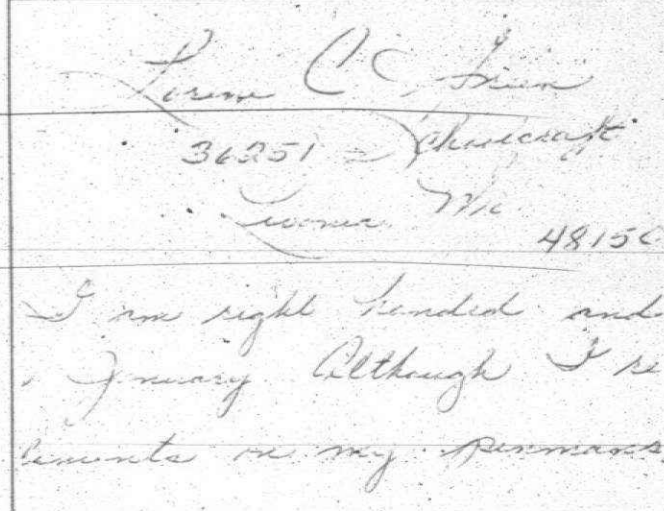 Lorene C Green
36251 Schoolcraft
Livonia Mi
48150
I am right handed and
January Although I re
ments on my penmans